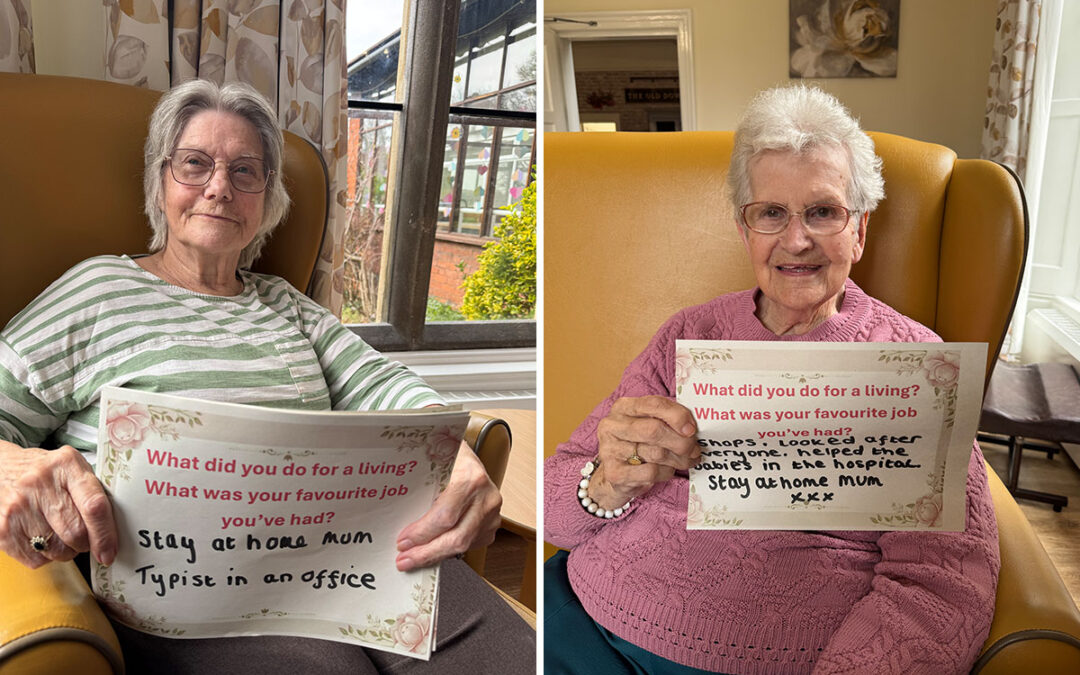 What did you do for a living?
What was your favourite job
you've had?
Stay at home mum
Typist in an office
THE OLD
What did you do for a living?
What was your favourite job
you've had?
Shops, Looked after
everyone. helped the
babies in the hospital.
Stay at home Mum
xxx